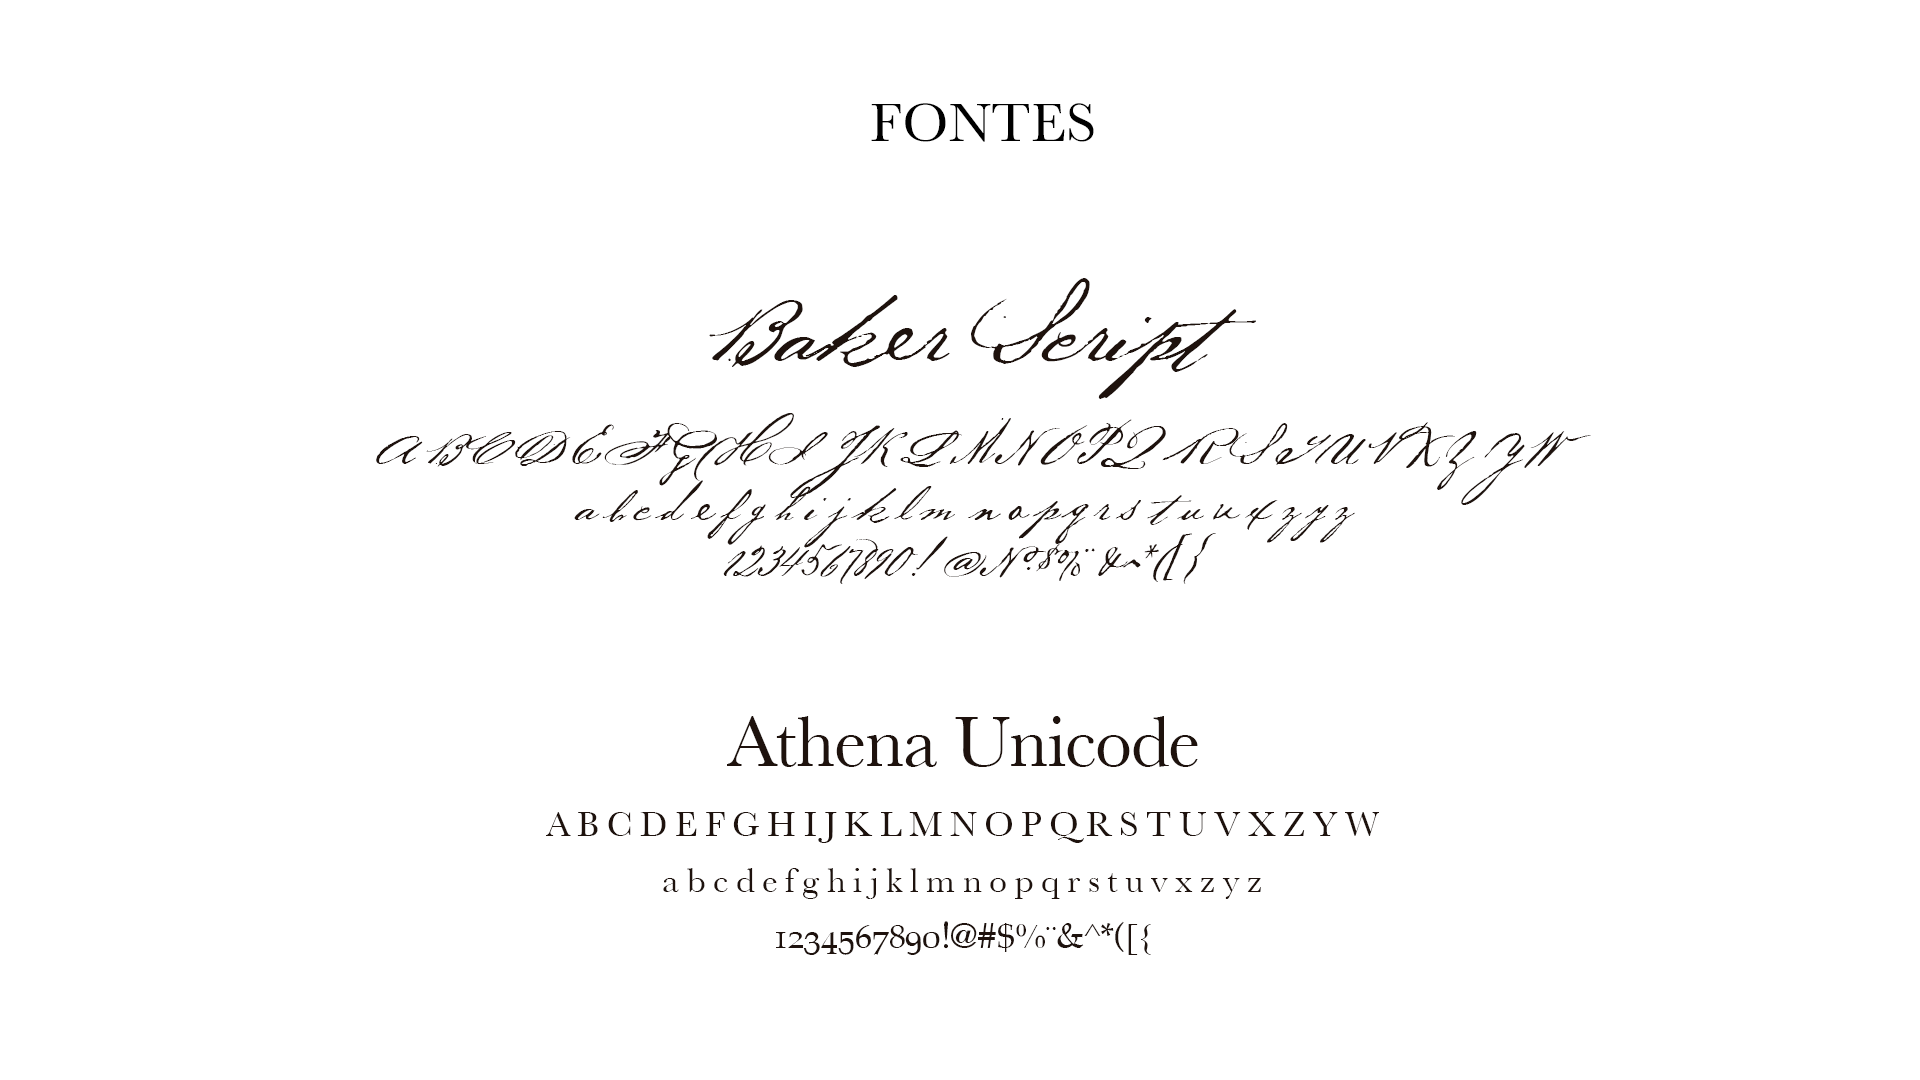 FONTES
Baker Script
A B C D E F G H I J K L M N O P Q R S T U V X Z Y W
a b c d e f g h i j k l m n o p q r s t u v x z y z
1234567890! @Nº.$%¨&^*([{
Athena Unicode
A B C D E F G H I J K L M N O P Q R S T U V X Z Y W
a b c d e f g h i j k l m n o p q r s t u v x z y z
1234567890!@#$%¨&^*([{